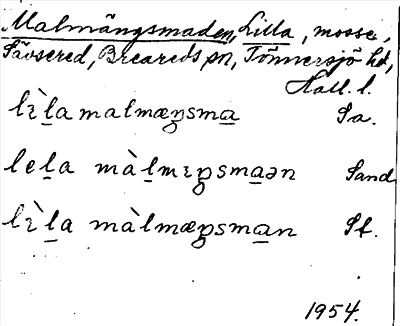 Malmängsmaden, Lilla, mosse,
Sävsered, Breareds sn, Tönnersjö hd,
Hall. l.
lɩ̀ḻa malmæŋsma̱ Sa.
leḻa màḻmɩŋsma̱ən Sand
lɩ̀ḻa màlmæŋsma̱n St.
1954.